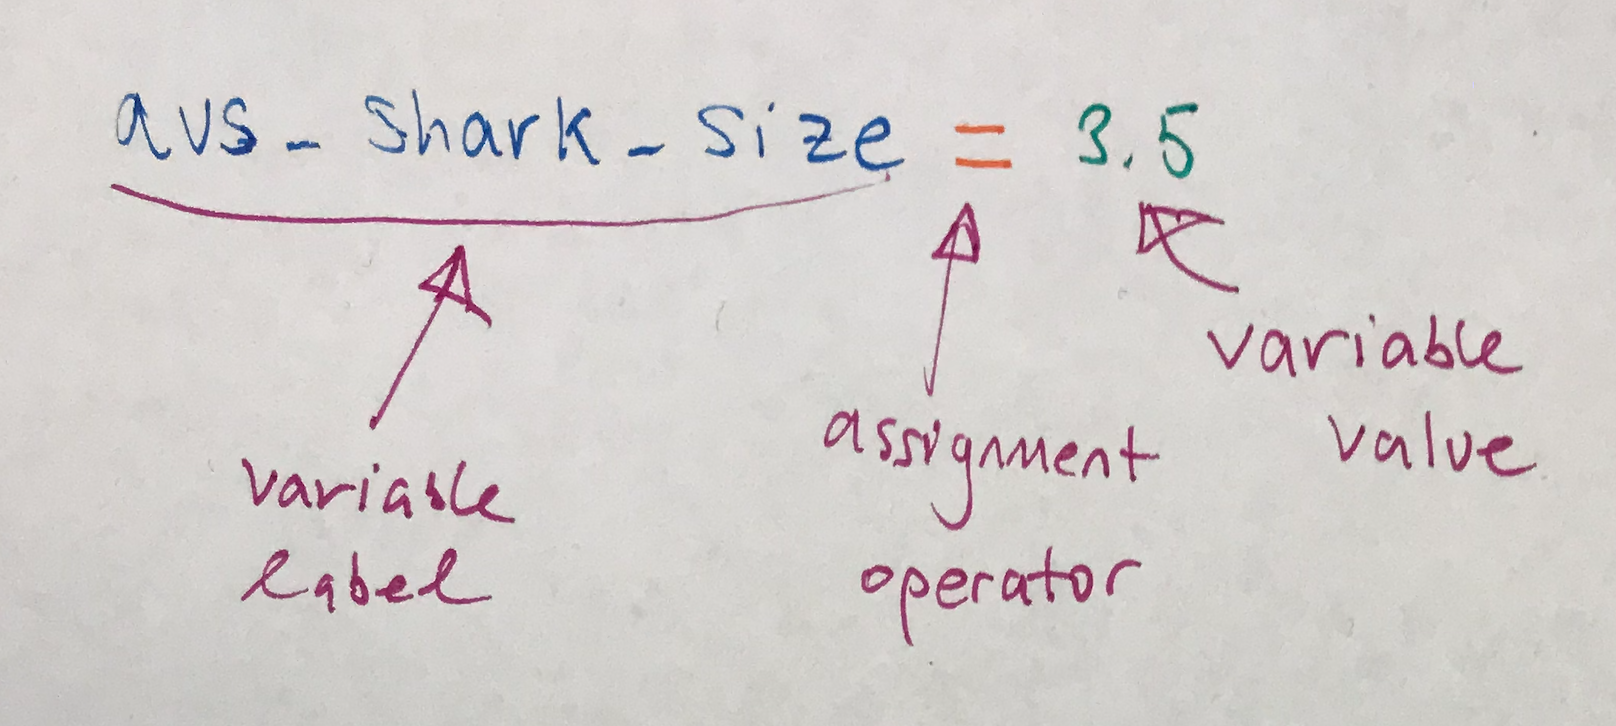 avs_shark_size = 3.5
variable
value
assignment
operator
variable
label